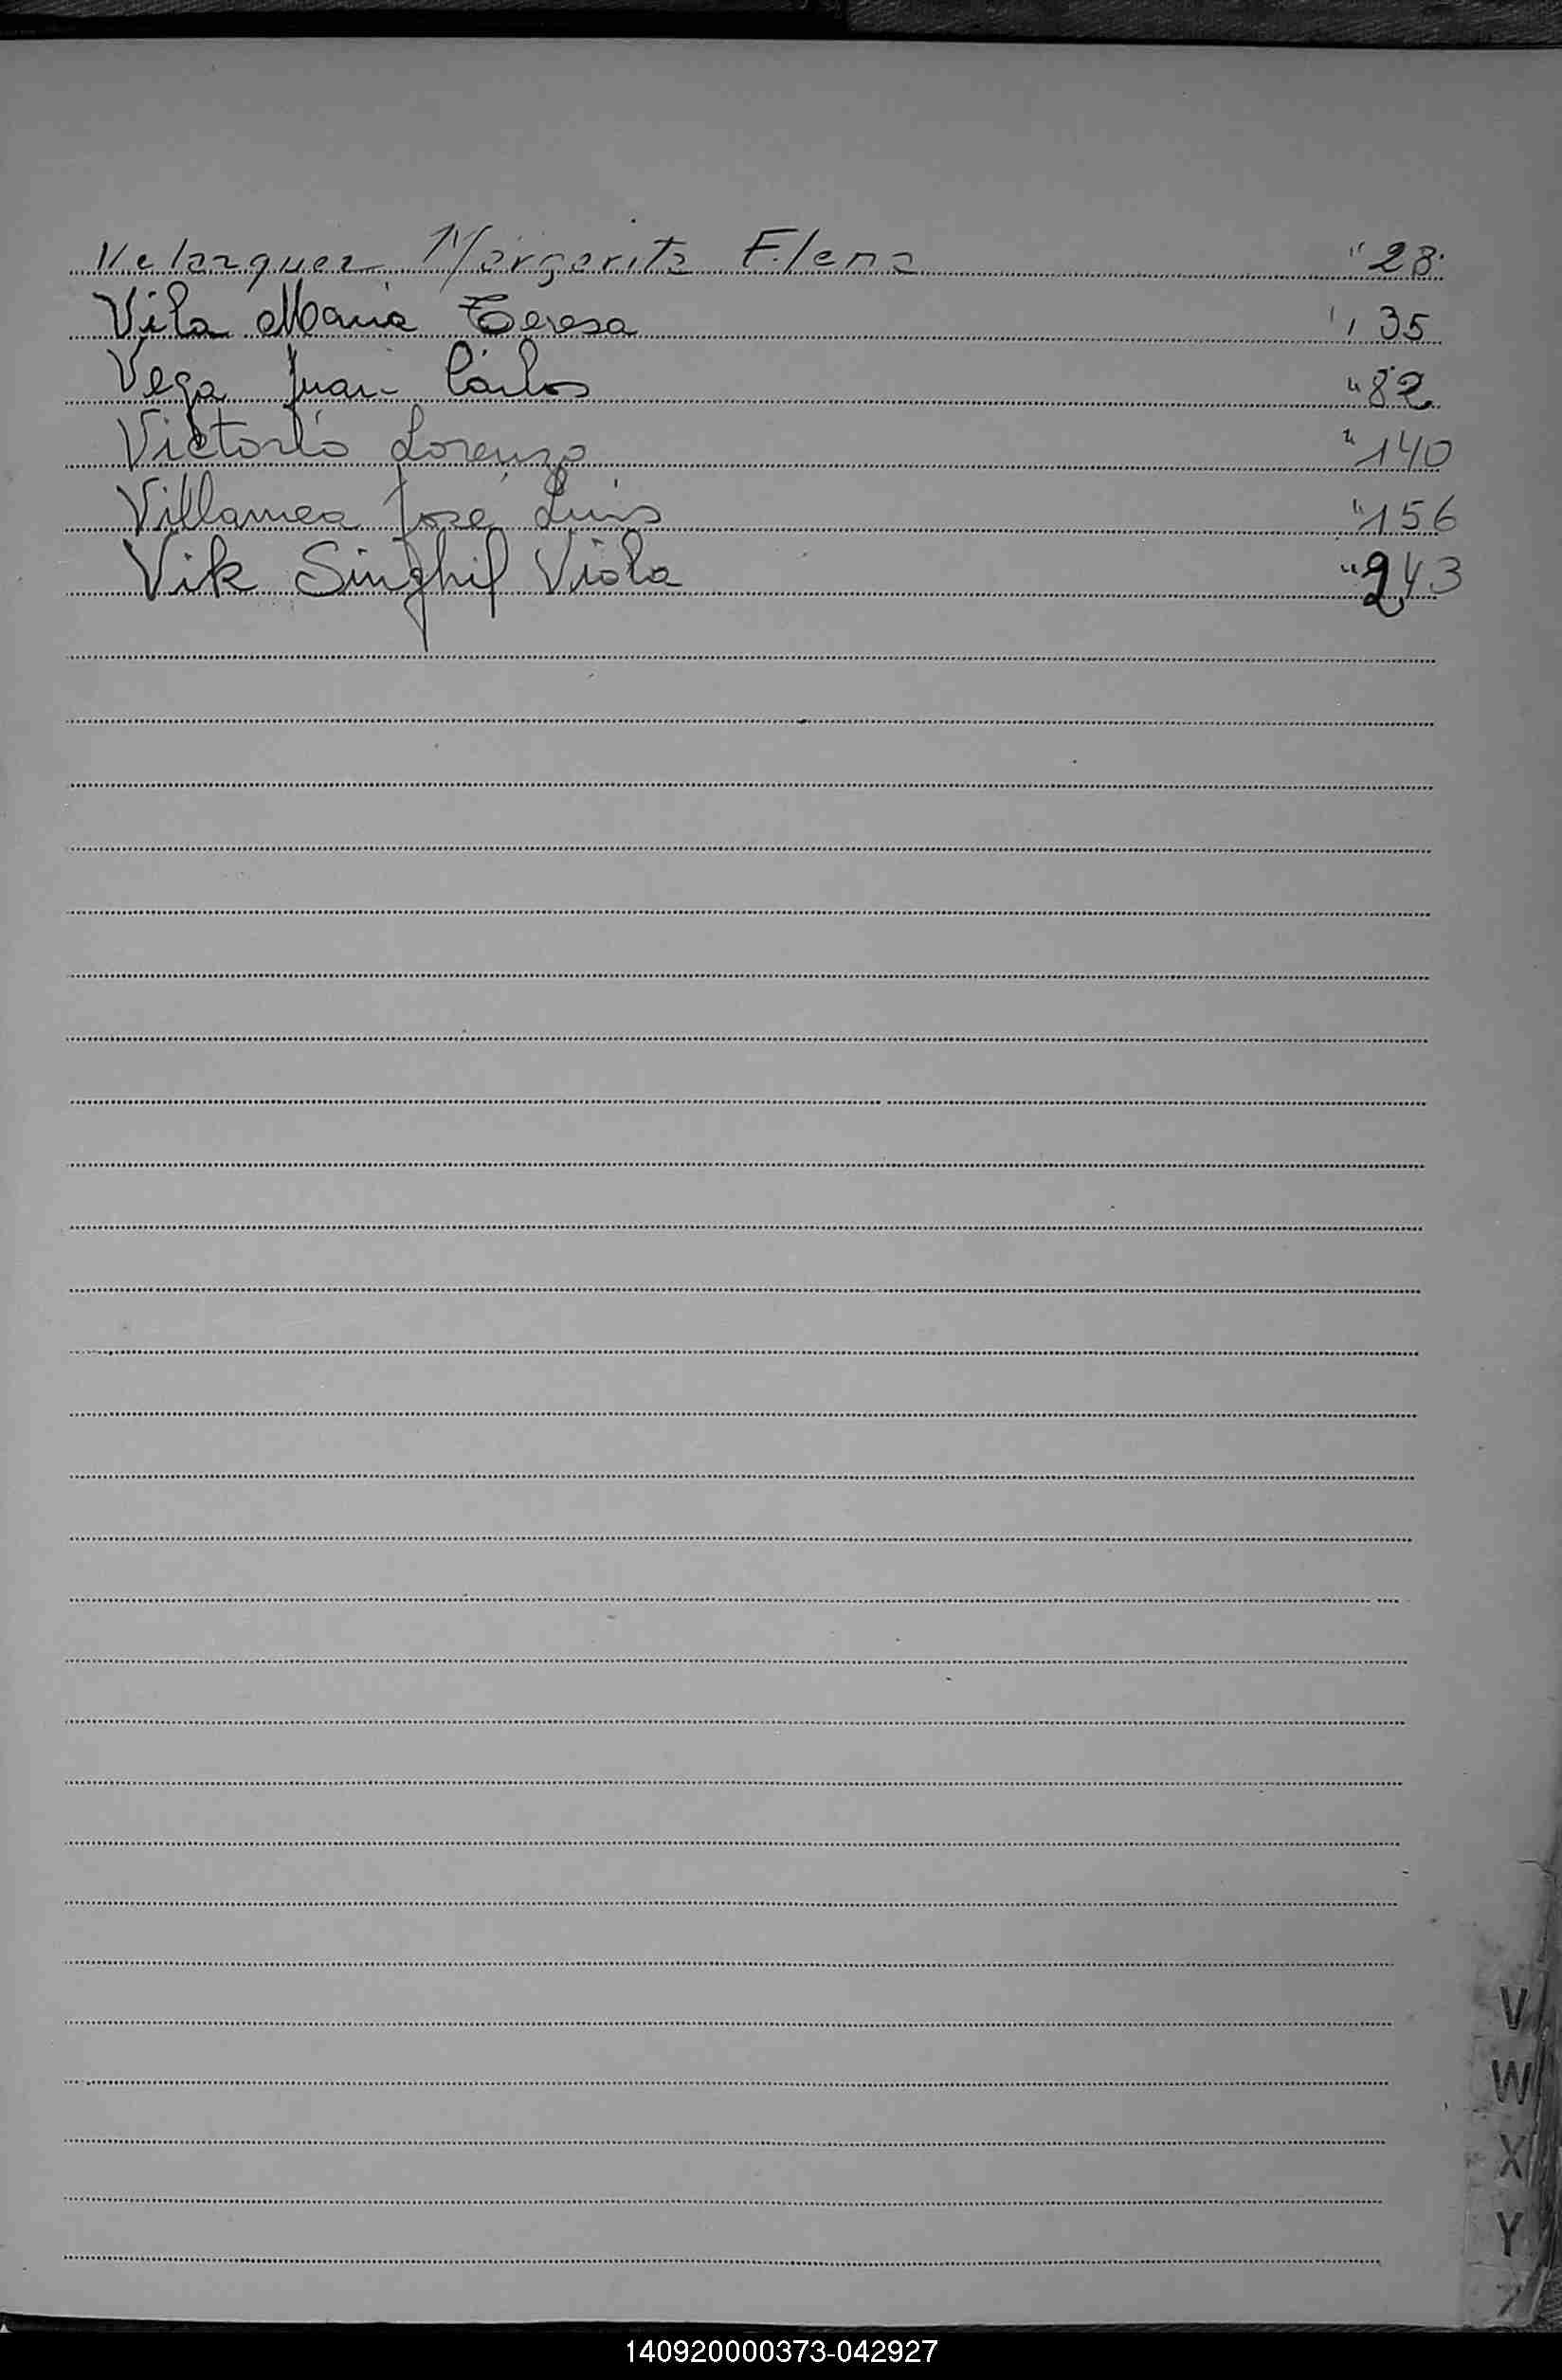 Velazquez Margarita Elena " 28
Vila Maria Teresa " 35
Vega Juan Carlos " 82
Victorio Lorenzo " 140
Villamea José Luis " 156
Vik Viola " 243
V
W
X
Y
Z
140920000373-042927